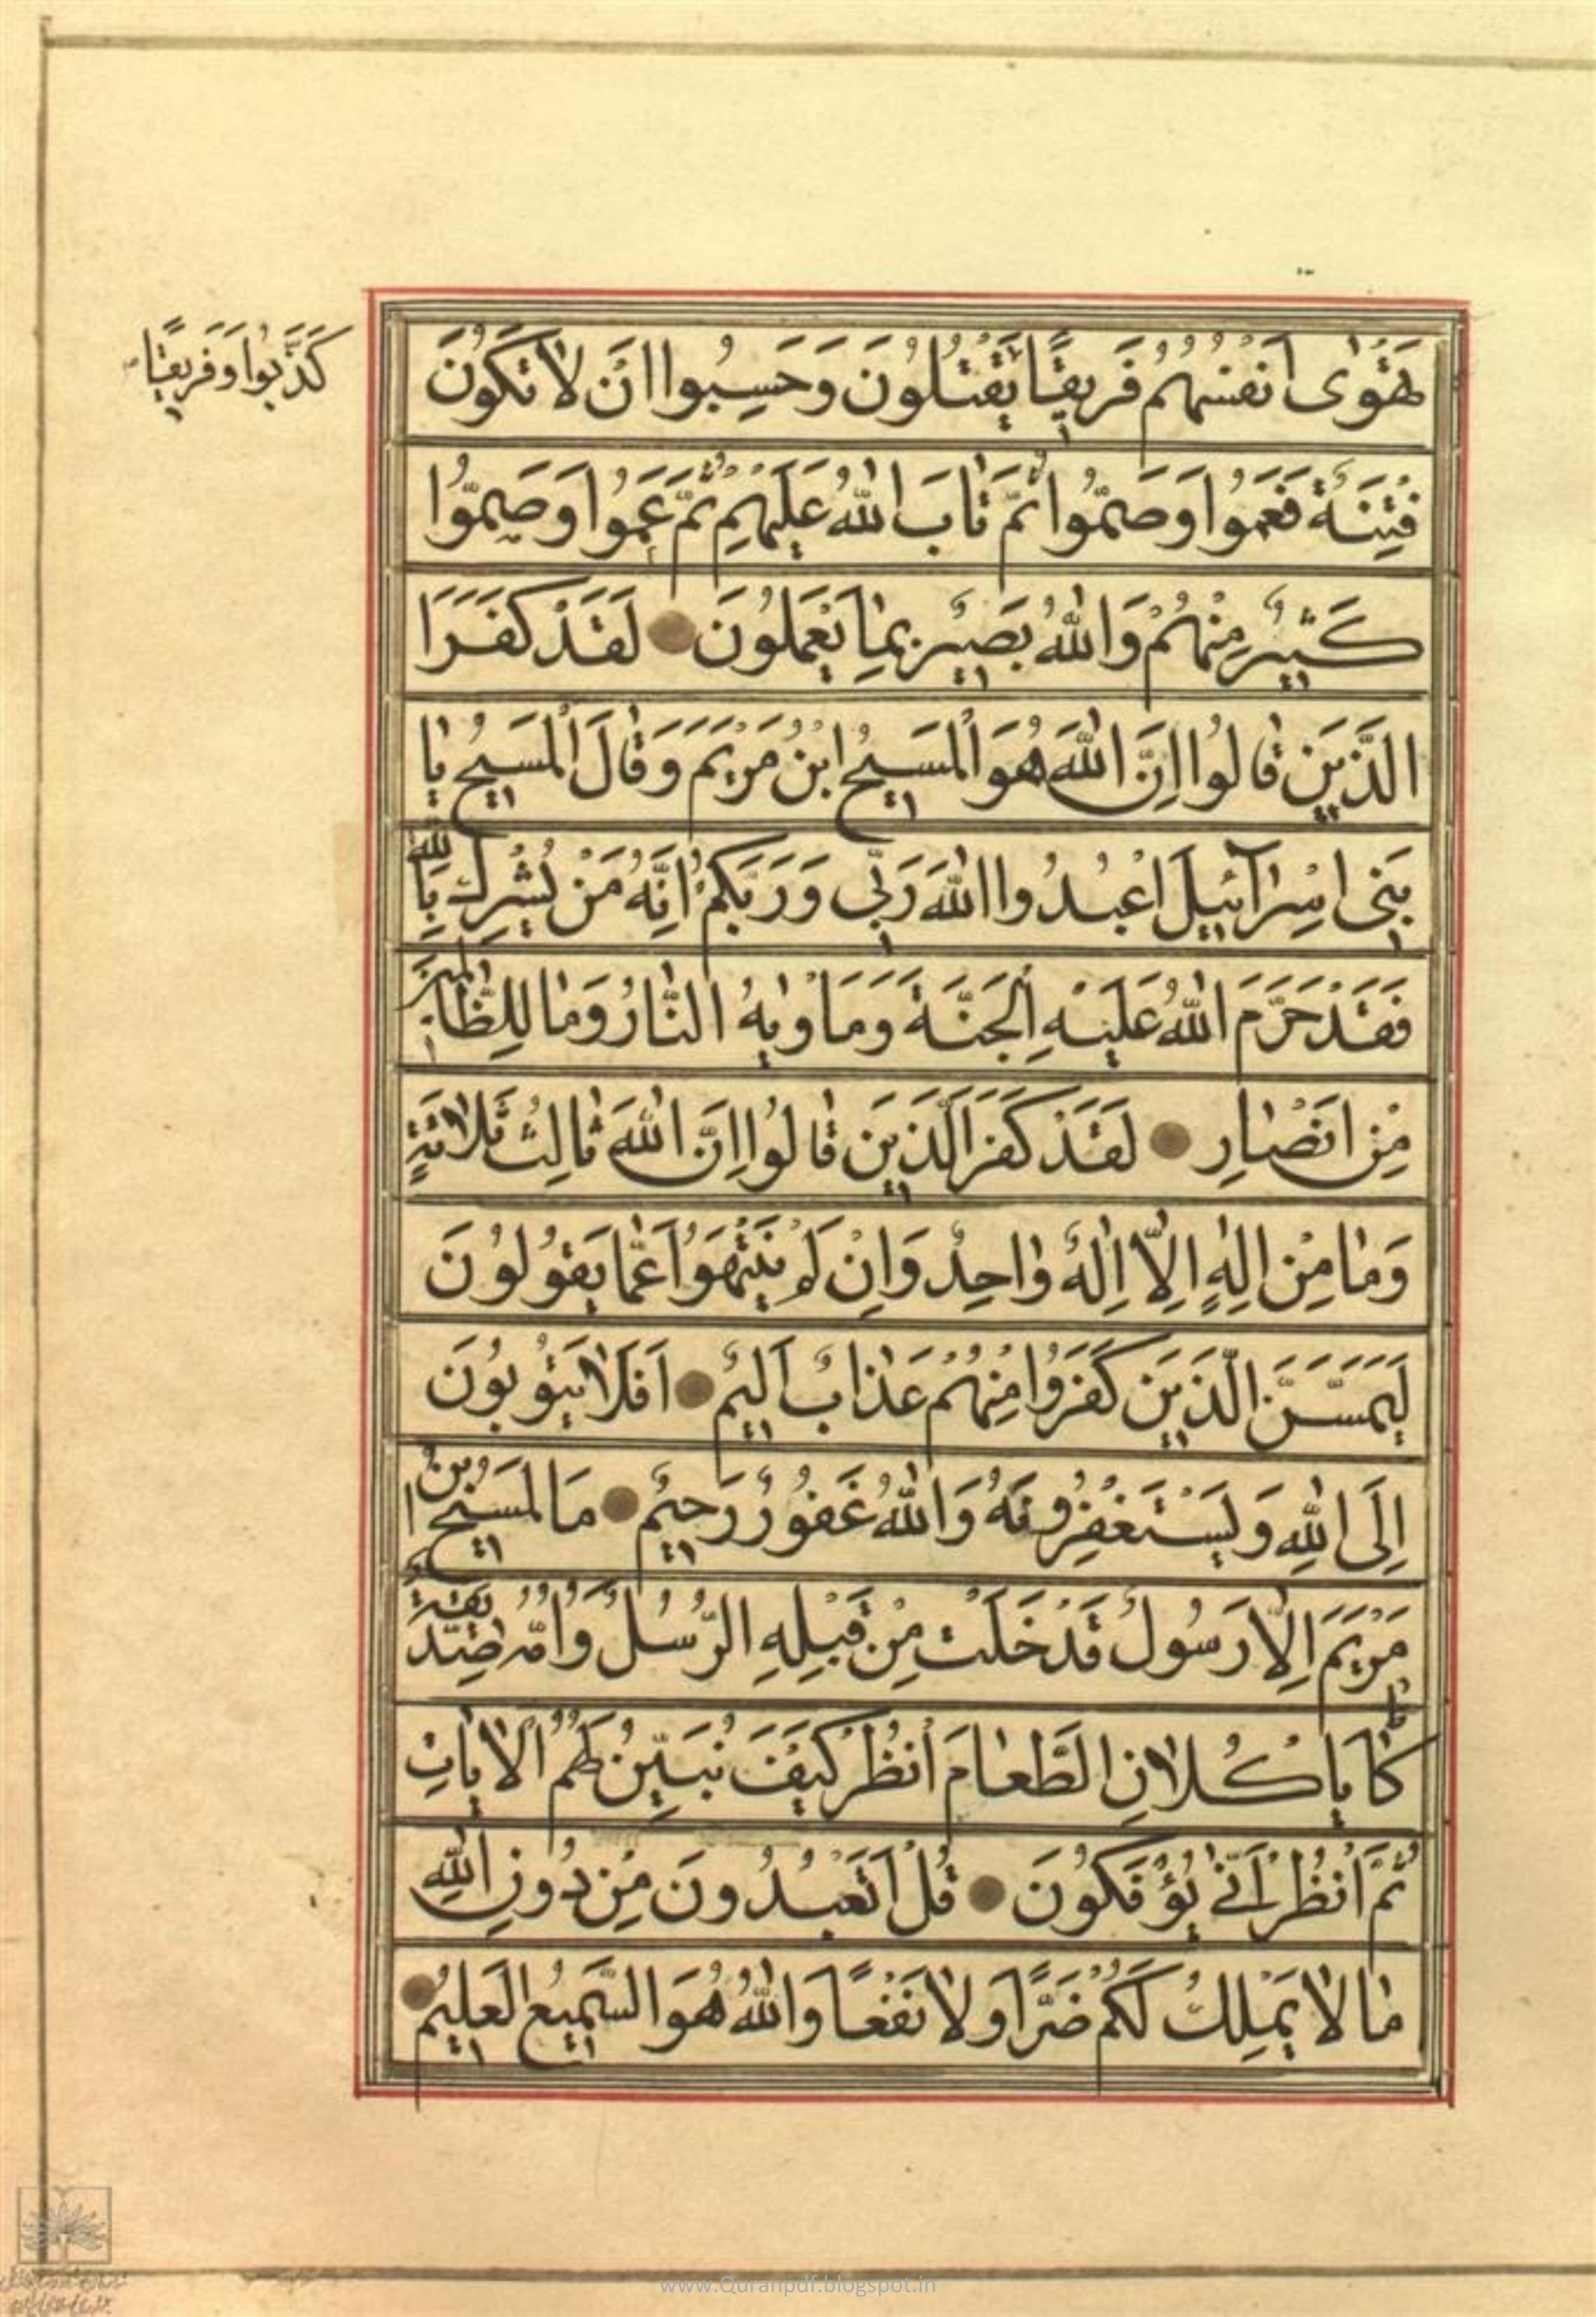 تَهْوٰى اَنْفُسُهُمْ فَرِيقًا يَقْتُلُونَ وَحَسِبُوا اَنْ لاٰ تَكُونَ
كَذَّبُوا وَفَرِيقًا
فِتْنَةٌ فَعَمُوا وَصَمُّوا ثُمَّ تٰابَ اللّٰهُ عَلَيْهِمْ ثُمَّ عَمُوا وَصَمُّوا
كَثِيرٌ مِنْهُمْ وَاللّٰهُ بَصِيرٌ بِمٰا يَعْمَلُونَ لَقَدْ كَفَرَ ا
الَّذِينَ قٰالُوا اِنَّ اللّٰهَ هُوَ الْمَسِيحُ ابْنُ مَرْيَمَ وَقٰالَ الْمَسِيحُ يٰا
بَنِى اِسْرٰآئِيلَ اعْبُدُوا اللّٰهَ رَبِّى وَرَبَّكُمْ اِنَّهُ مَنْ يُشْرِكْ بِاللّٰهِ
فَقَدْ حَرَّمَ اللّٰهُ عَلَيْهِ الْجَنَّةَ وَمَاْوٰيهُ النّٰارُ وَمٰا لِلظّٰالِمِينَ
مِنْ اَنْصٰارٍ لَقَدْ كَفَرَ الَّذِينَ قٰالُوا اِنَّ اللّٰهَ ثٰالِثُ ثَلاٰثَةٍ
وَمٰا مِنْ اِلٰهٍ اِلاّٰ اِلٰهٌ وٰاحِدٌ وَاِنْ لَمْ يَنْتَهُوا عَمّٰا يَقُولُونَ
لَيَمَسَّنَّ الَّذِينَ كَفَرُوا مِنْهُمْ عَذٰابٌ اَلِيمٌ اَفَلاٰ يَتُوبُونَ
اِلَى اللّٰهِ وَيَسْتَغْفِرُونَهُ وَاللّٰهُ غَفُورٌ رَحِيمٌ مَا الْمَسِيحُ ابْنُ
مَرْيَمَ اِلاّٰ رَسُولٌ قَدْ خَلَتْ مِنْ قَبْلِهِ الرُّسُلُ وَاُمُّهُ صِدِّيقَةٌ
كٰانٰا يَاْكُلاٰنِ الطَّعٰامَ اُنْظُرْ كَيْفَ نُبَيِّنُ لَهُمُ الْاٰيٰاتِ
ثُمَّ اُنْظُرْ اَنّٰى يُؤْفَكُونَ قُلْ اَتَعْبُدُونَ مِنْ دُونِ اللّٰهِ
مٰا لاٰ يَمْلِكُ لَكُمْ ضَرًّا وَلاٰ نَفْعًا وَاللّٰهُ هُوَ السَّمِيعُ الْعَلِيمُ
www.Quranpdf.blogspot.in